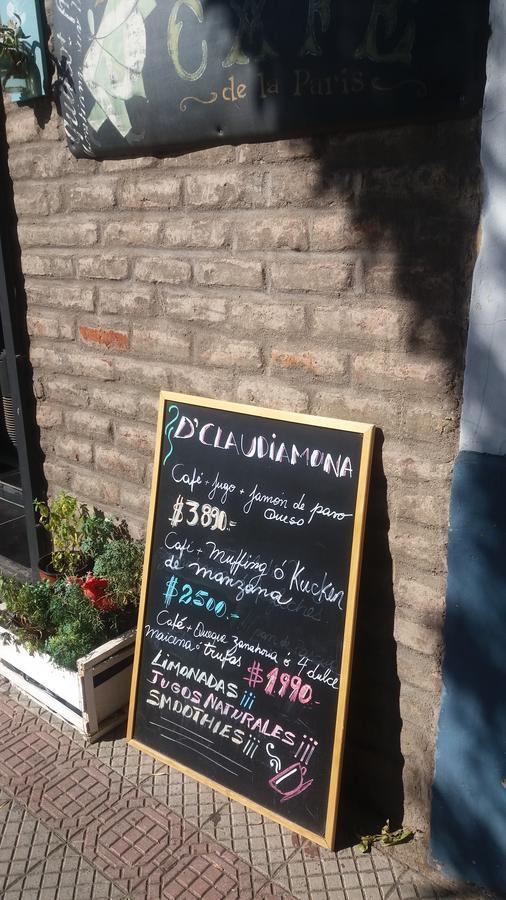 CAFE
de la Paris
D'CLAUDIAMONA
Café + Jugo + Jamón de pavo
Queso
$3890.-
Café + Muffing ó Kuchen
de manzana
$2500.-
Café + Queque zanahoria ó 4 dulce
maicena ó trufas $1990.-
LIMONADAS ¡¡¡
JUGOS NATURALES ¡¡¡
SMOOTHIES ¡¡¡